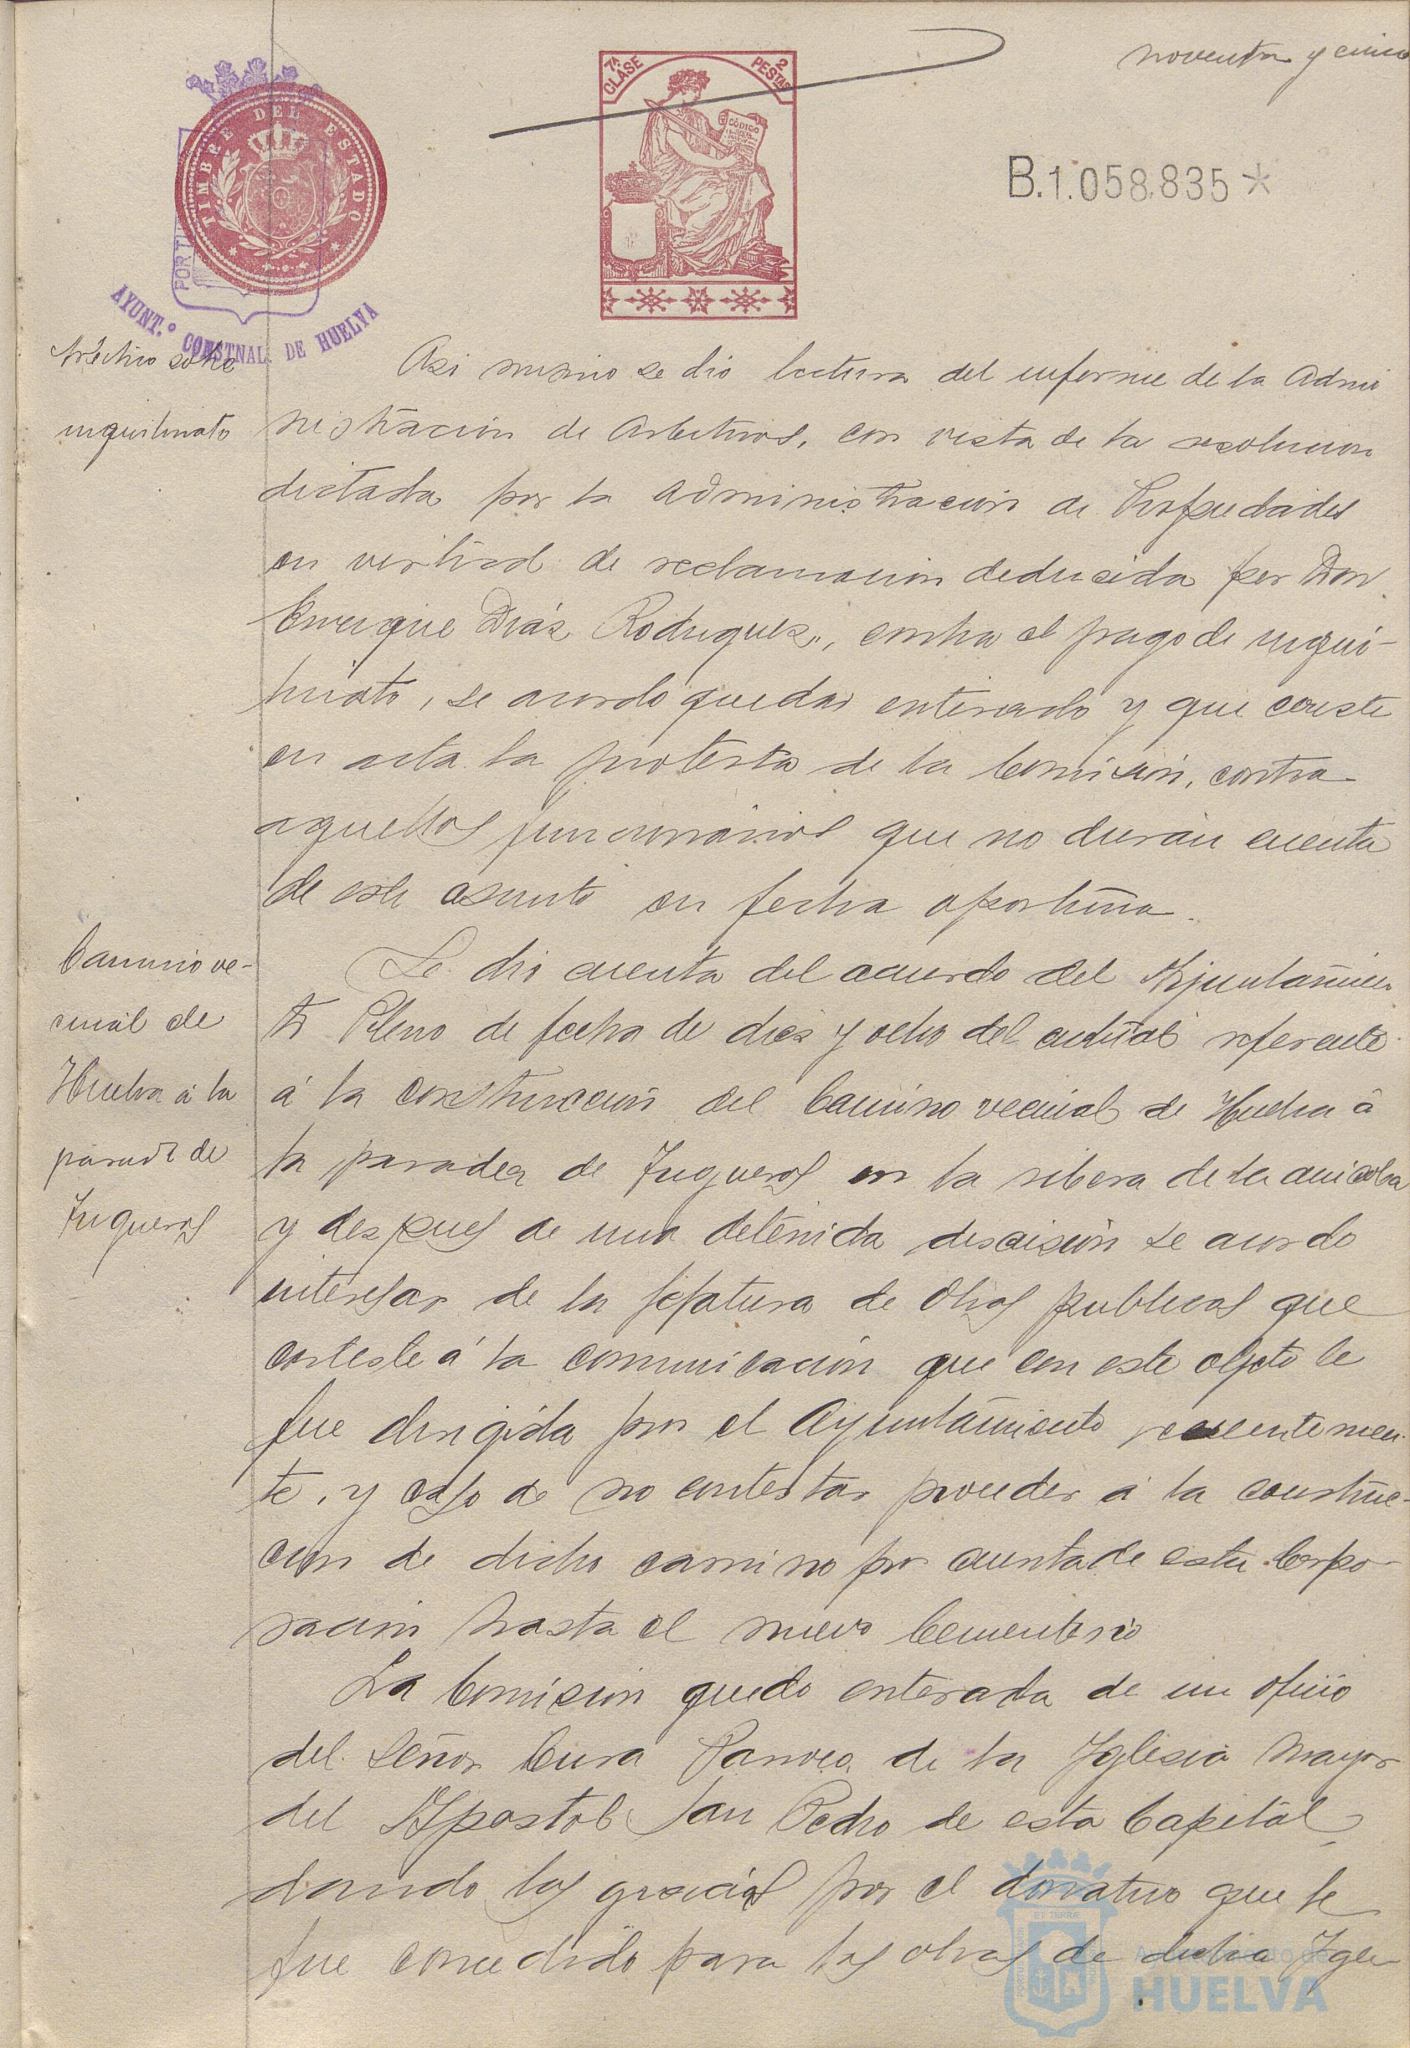 noventa y cinco
7ª CLASE
2 PESTAS
CÓDIGO
TIMBRE DEL ESTADO
B.1.058.835*
AYUNT.º CONSTNAL DE HUELVA
Arbitrio sobre
inquilinato
Asi mismo se dio lectura del informe de la Admi
nistración de Arbitrios, con vista de la resolucion
dictada por la Administración de Propiedades
en virtud de reclamación deducida por Don
Enrique Diáz Rodriguez, contra el pago de inqui-
linato, se acordo quedar enterado y que conste
en acta la protesta de la Comisión, contra
aquellos funcionarios que no dieran cuenta
de este asunto en fecha oportuna.
Camino ve-
cinal de
Huelva á la
parada de
Jugueros
Se dio cuenta del acuerdo del Ayuntamien
to Pleno de fecha de diez y ocho del actual referente
á la construcción del Camino vecinal de Huelva á
la parada de Jugueros en la ribera de la anicoba
y despues de una detenida discisión se acordo
interesar de la Jefatura de Obras publicas que
conteste á la comunicación que con este objeto le
fue dirigida por el Ayuntamiento recientemen-
te, y caso de no contestar proceder á la construc-
cion de dicho camino por cuenta de esta Corpo-
ración hasta el nuevo Cementerio
La Comisión quedo enterada de un oficio
del Señor Cura Parroco de la Iglesia mayor
del Apostol San Pedro de esta Capital,
dando las gracias por el donativo que le
fue concedido para las obras de dicha Igle-
Ayuntamiento de
HUELVA